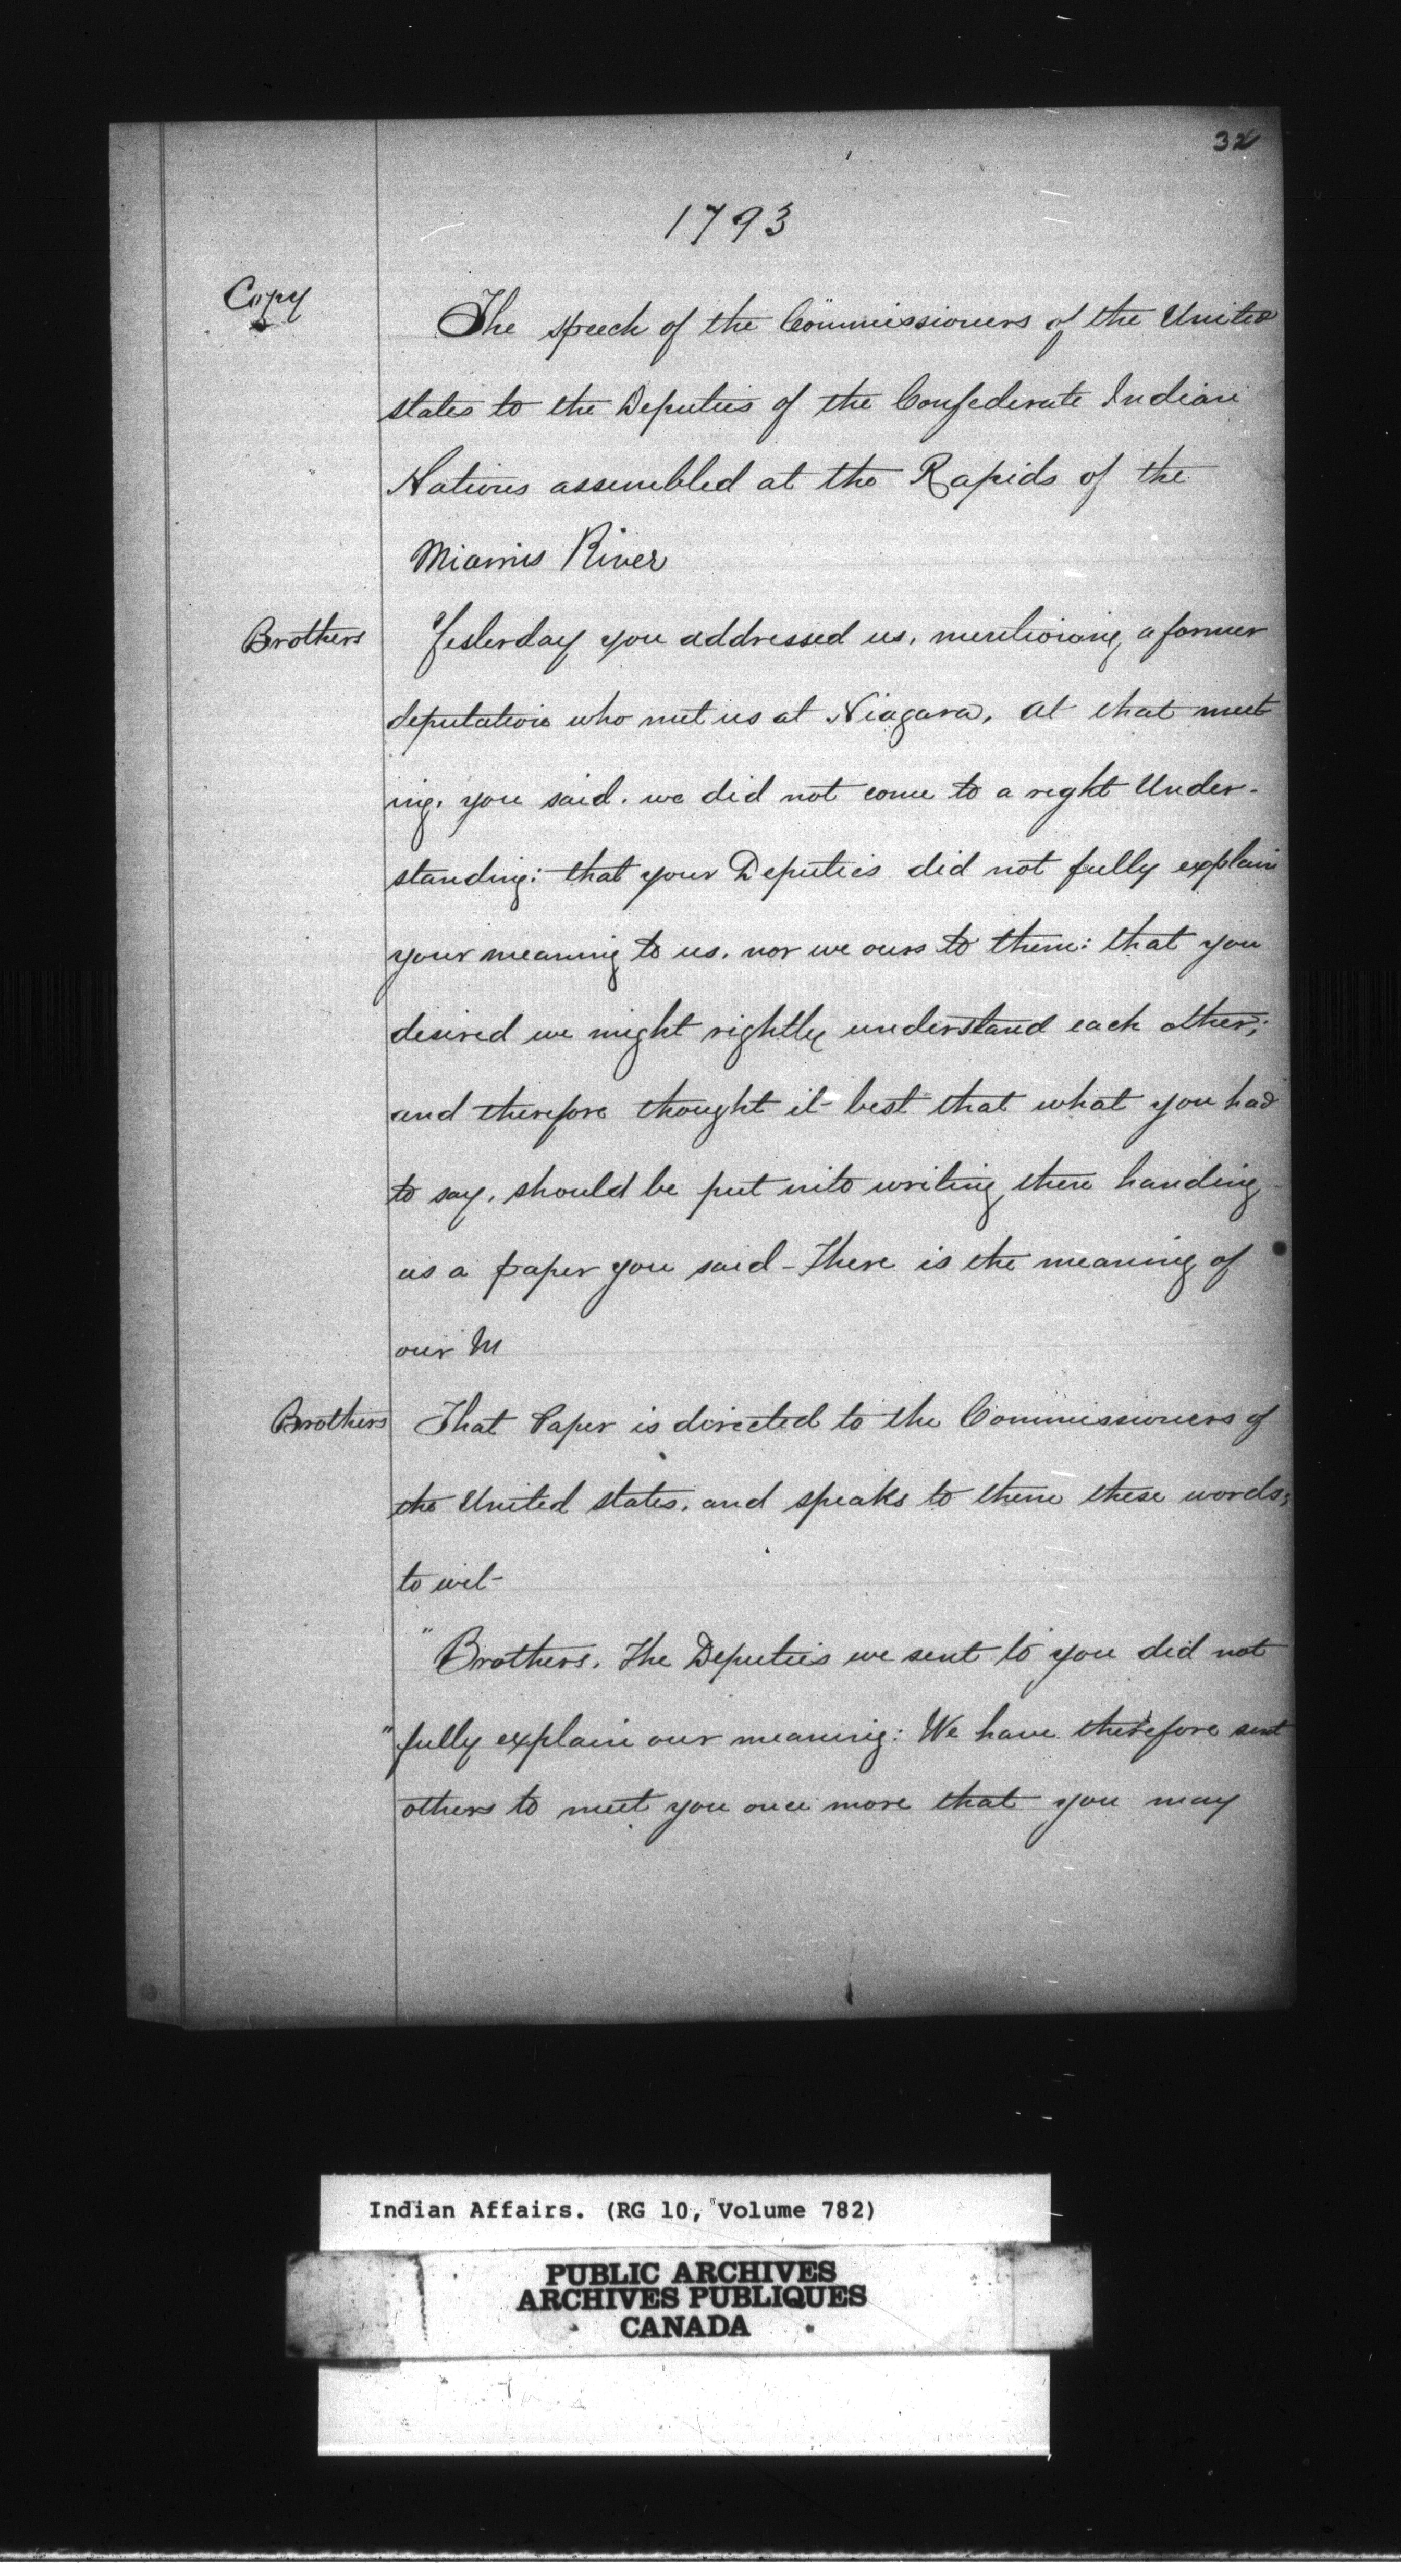 32
1793
Copy
The speech of the Commissioners of the United
states to the Deputies of the Confederate Indian
Nations assembled at the Rapids of the
Miamis River
Brothers Yesterday you addressed us, mentioning a former
deputation who met us at Niagara. At that meet
ing, you said. we did not come to a right Under-
standing: that your Deputies did not fully explain
your meaning to us. nor we ours to them: that you
desired we might rightly understand each other;
and therefore thought it best that what you had
to say, should be put into writing, then handing
us a paper you said - There is the meaning of
our M
Brothers That Paper is directed to the Commissioners of
the United states. and speaks to them these words;
to wit-
"Brothers. The Deputies we sent to you did not
"fully explain our meaning: We have therefore sent
others to meet you once more that you may
Indian Affairs. (RG 10, Volume 782)
PUBLIC ARCHIVES
ARCHIVES PUBLIQUES
CANADA